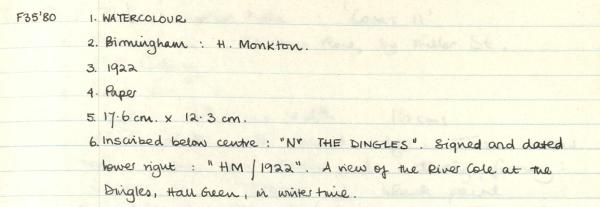 F35'80 1. WATERCOLOUR
2. Birmingham : H. Monkton.
3. 1922
4. Paper
5. 17.6 cm. x 12.3 cm.
6. Inscribed below centre : "Nr THE DINGLES". Signed and dated
lower right : "HM/1922". A view of the River Cole at the
Dingles, Hall Green, in winter time.